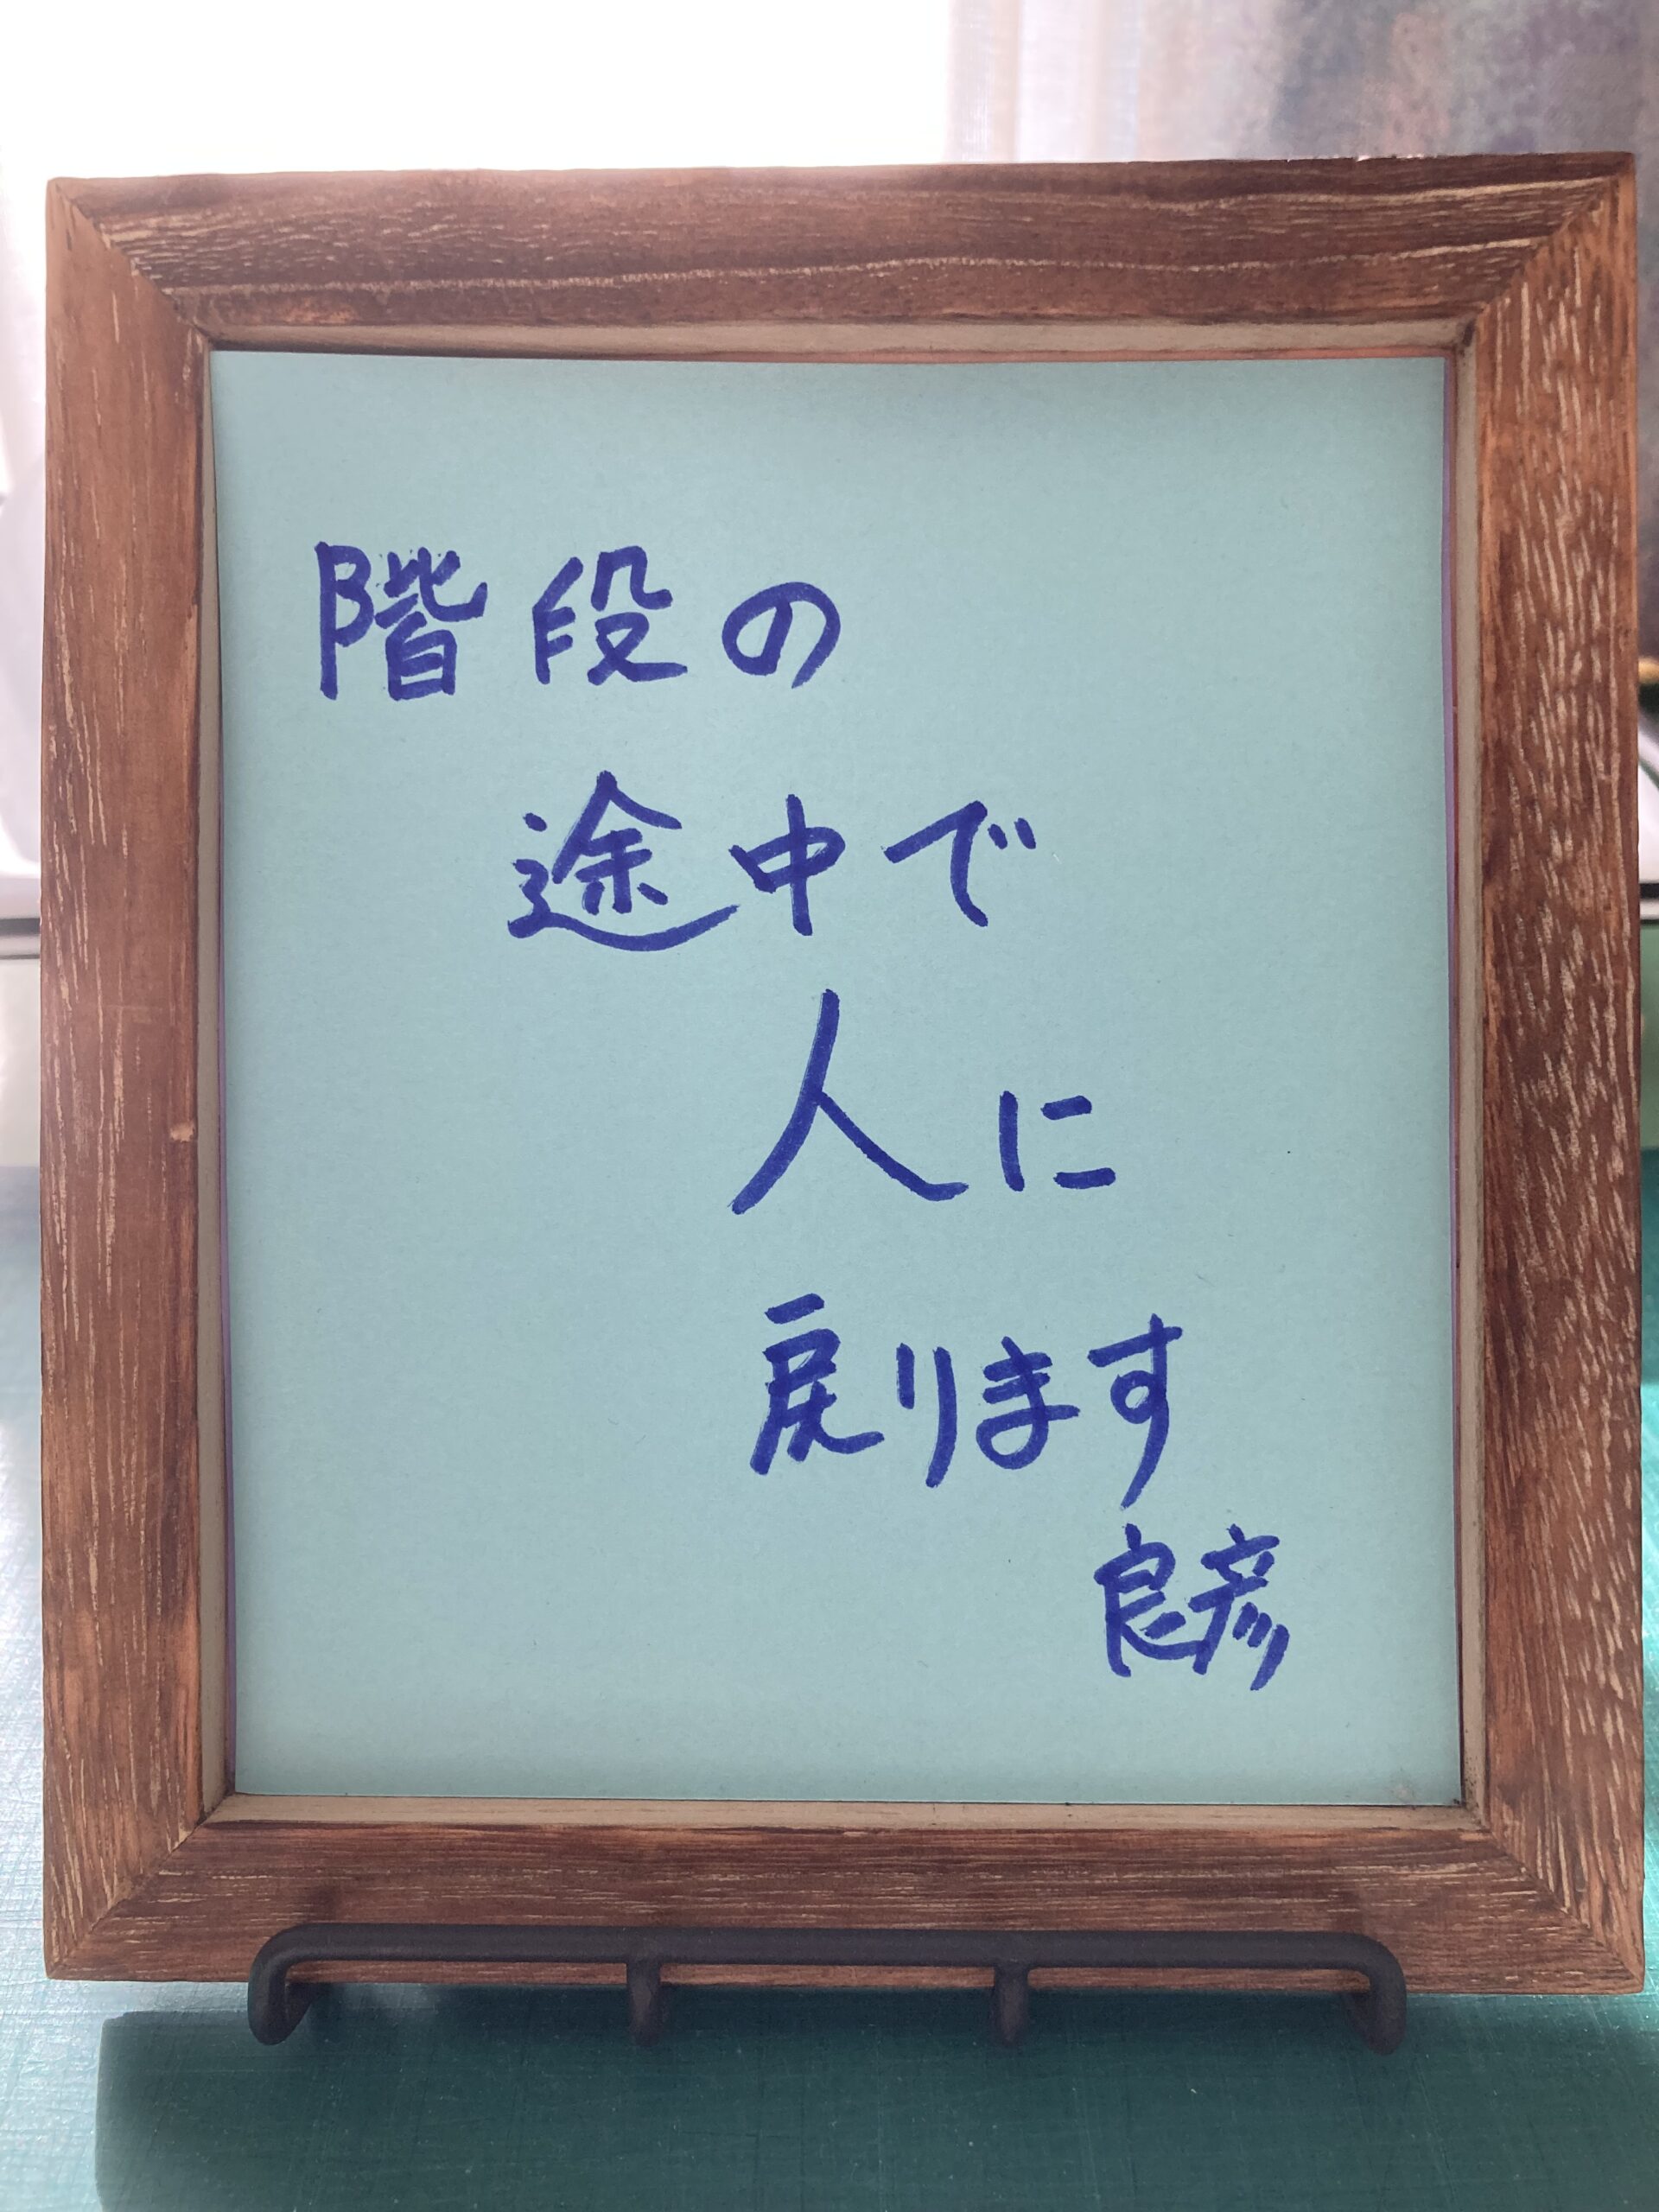 階段の
途中で
人に
戻ります
良彦